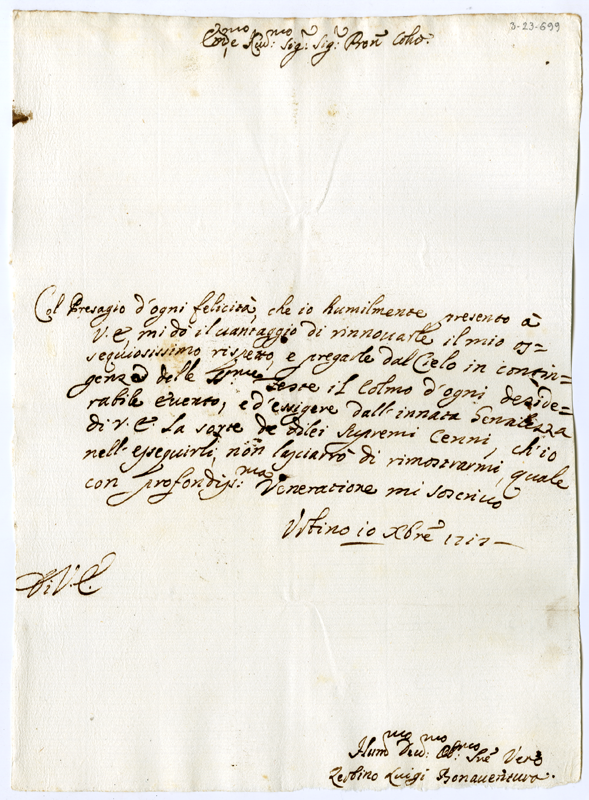 3-23-699
Em̃o e Rev:mo Sig:r Sig:r Pron̄ Colmo.
Col Presagio d'ogni felicità, che io humilmente presento à
V. E. mi dò il vantaggio di rinnovarle il mio os=
sequiosissimo rispetto, e pregarle dal Cielo in contin=
genza delle S͞sme feste il Colmo d'ogni deside=
rabile evento; e d'esigere dall'innata Genalezza
di V. E. la sorte de di lei supremi Cenni, ch'io
nell'esseguirli, non lasciarrò di rimostrarmi, quale
con profondiss:ma Veneratione mi soscrivo
Urbino 10 Xbre 1717
Di V. E.
Hum:mo Dev:mo Ob:mo Sre Vero
Zerbino Luigi Bonaventura.